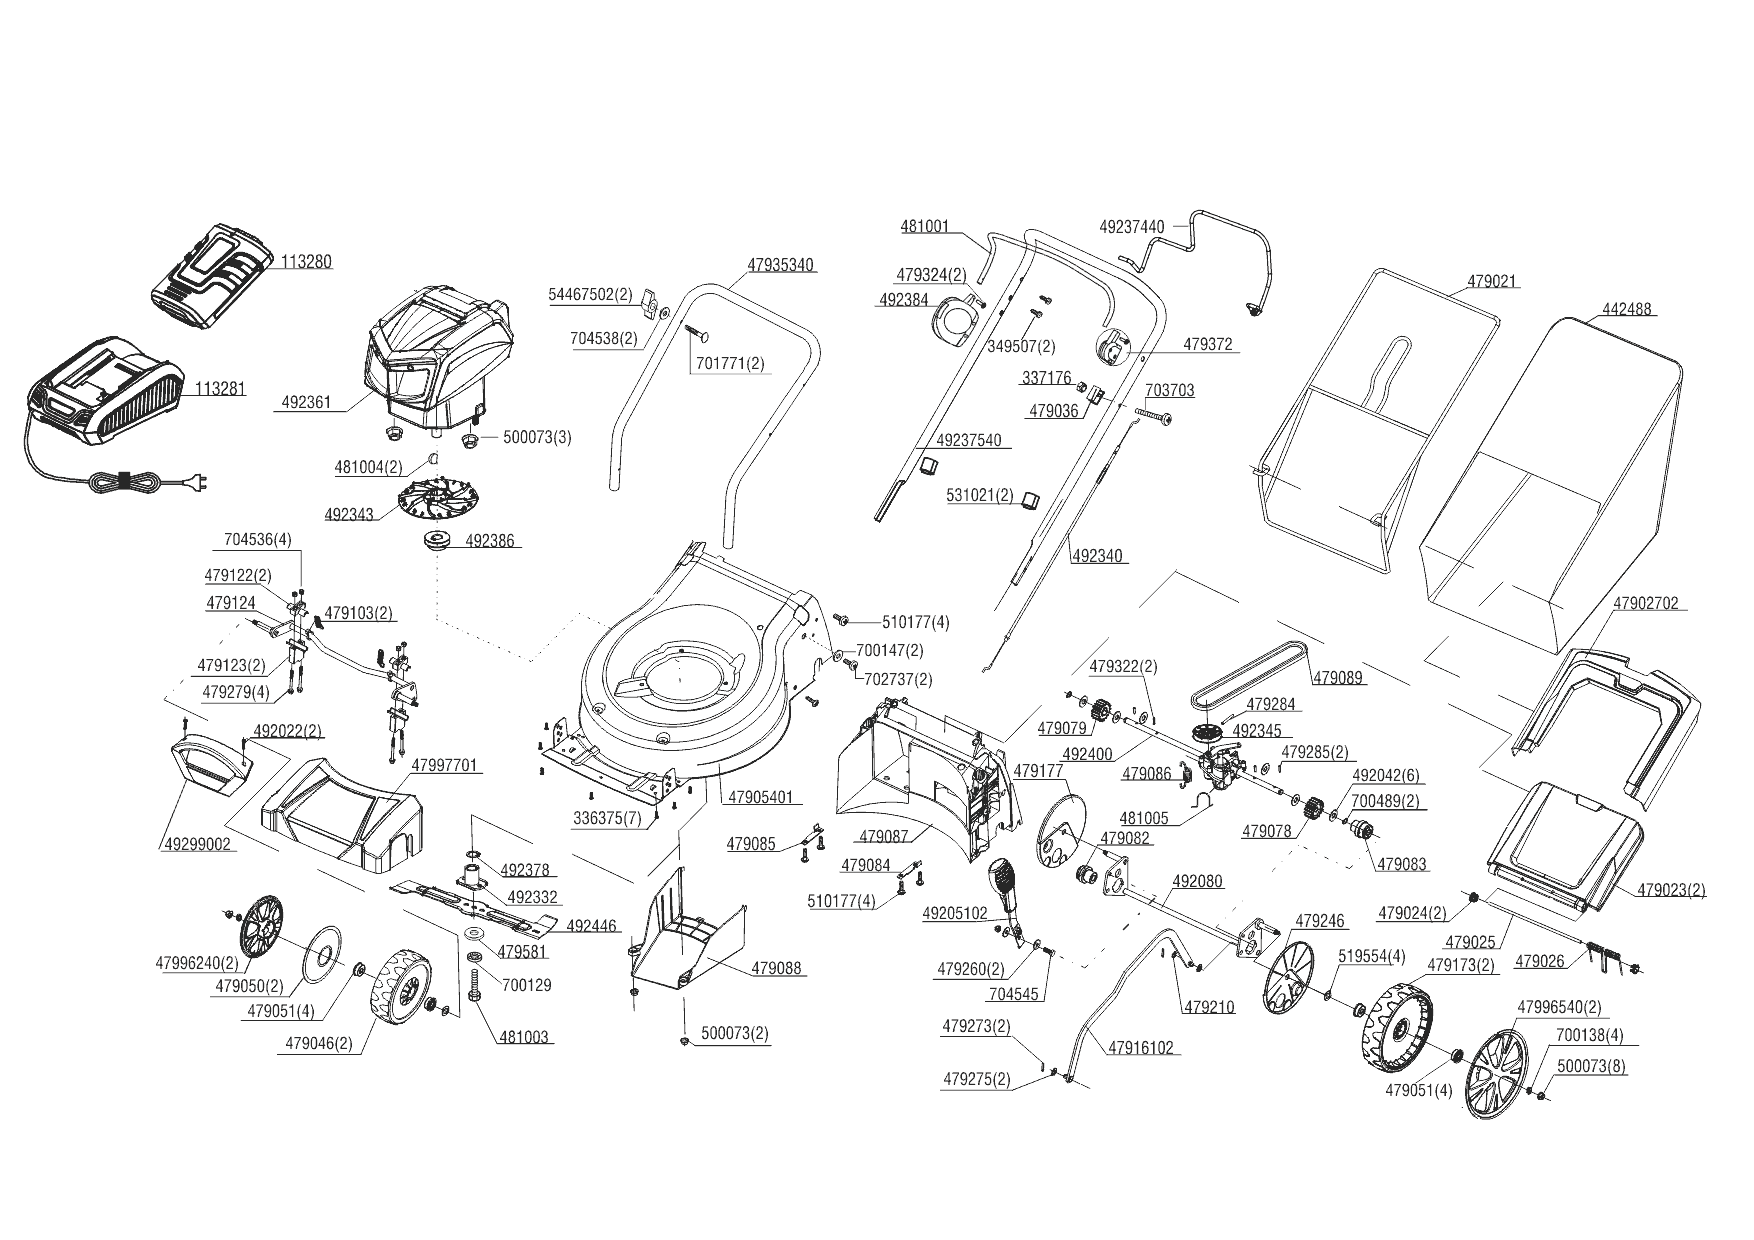 113280
113281
492361
500073(3)
481004(2)
492343
492386
47935340
54467502(2)
704538(2)
701771(2)
481001
479324(2)
492384
349507(2)
479372
337176
479036
703703
49237440
49237540
531021(2)
492340
479021
442488
47902702
704536(4)
479122(2)
479124
479103(2)
479123(2)
479279(4)
492022(2)
47997701
49299002
510177(4)
700147(2)
702737(2)
47905401
336375(7)
479085
479084
510177(4)
479087
479322(2)
479079
492400
479086
481005
479089
479284
492345
479285(2)
492042(6)
700489(2)
479078
479083
479177
479082
492080
49205102
479260(2)
704545
479246
519554(4)
479173(2)
479210
47916102
479273(2)
479275(2)
479023(2)
479024(2)
479025
479026
47996540(2)
700138(4)
500073(8)
479051(4)
492378
492332
492446
479581
700129
481003
479088
500073(2)
47996240(2)
479050(2)
479051(4)
479046(2)